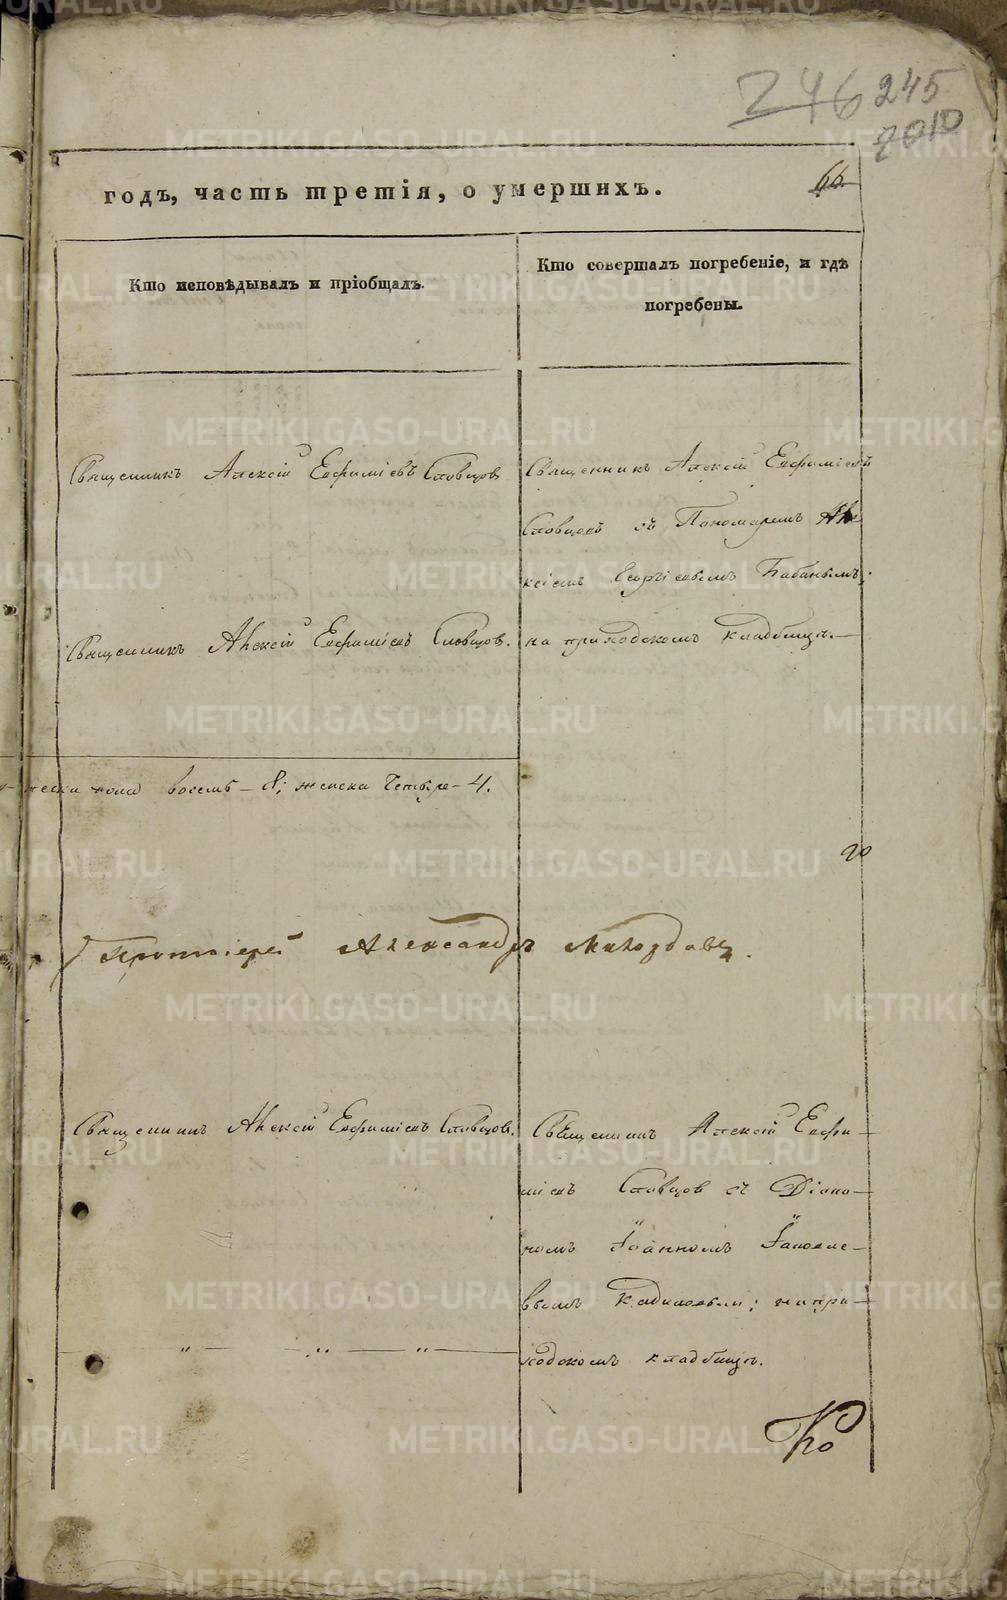 246 245
2010
66
годъ, часть третія, о умершихъ.
Кто исповѣдывалъ и пріобщалъ.
Кто совершалъ погребеніе, и гдѣ
погребены.
Священникъ Алексій Евфиміевъ Словцов
Священникъ Алексій Евфиміевъ
Словцовъ съ Пономаремъ Але
ксіемъ Георгіевымъ Бабинымъ;
Священникъ Алексій Евфиміевъ Словцов.
на приходскомъ кладбищѣ.—
пола восемь — 8; женска Четыре — 4.
20
Протоіерей Александръ
Священникъ Алексій Евфиміевъ Словцов.
Священникъ Алексій Евфи—
міевъ Словцов съ Діако—
номъ Іоанномъ Іаковле—
вымъ ; на при—
ходскомъ кладбищѣ.
" — " — " —
Ко
METRIKI.GASO-URAL.RU